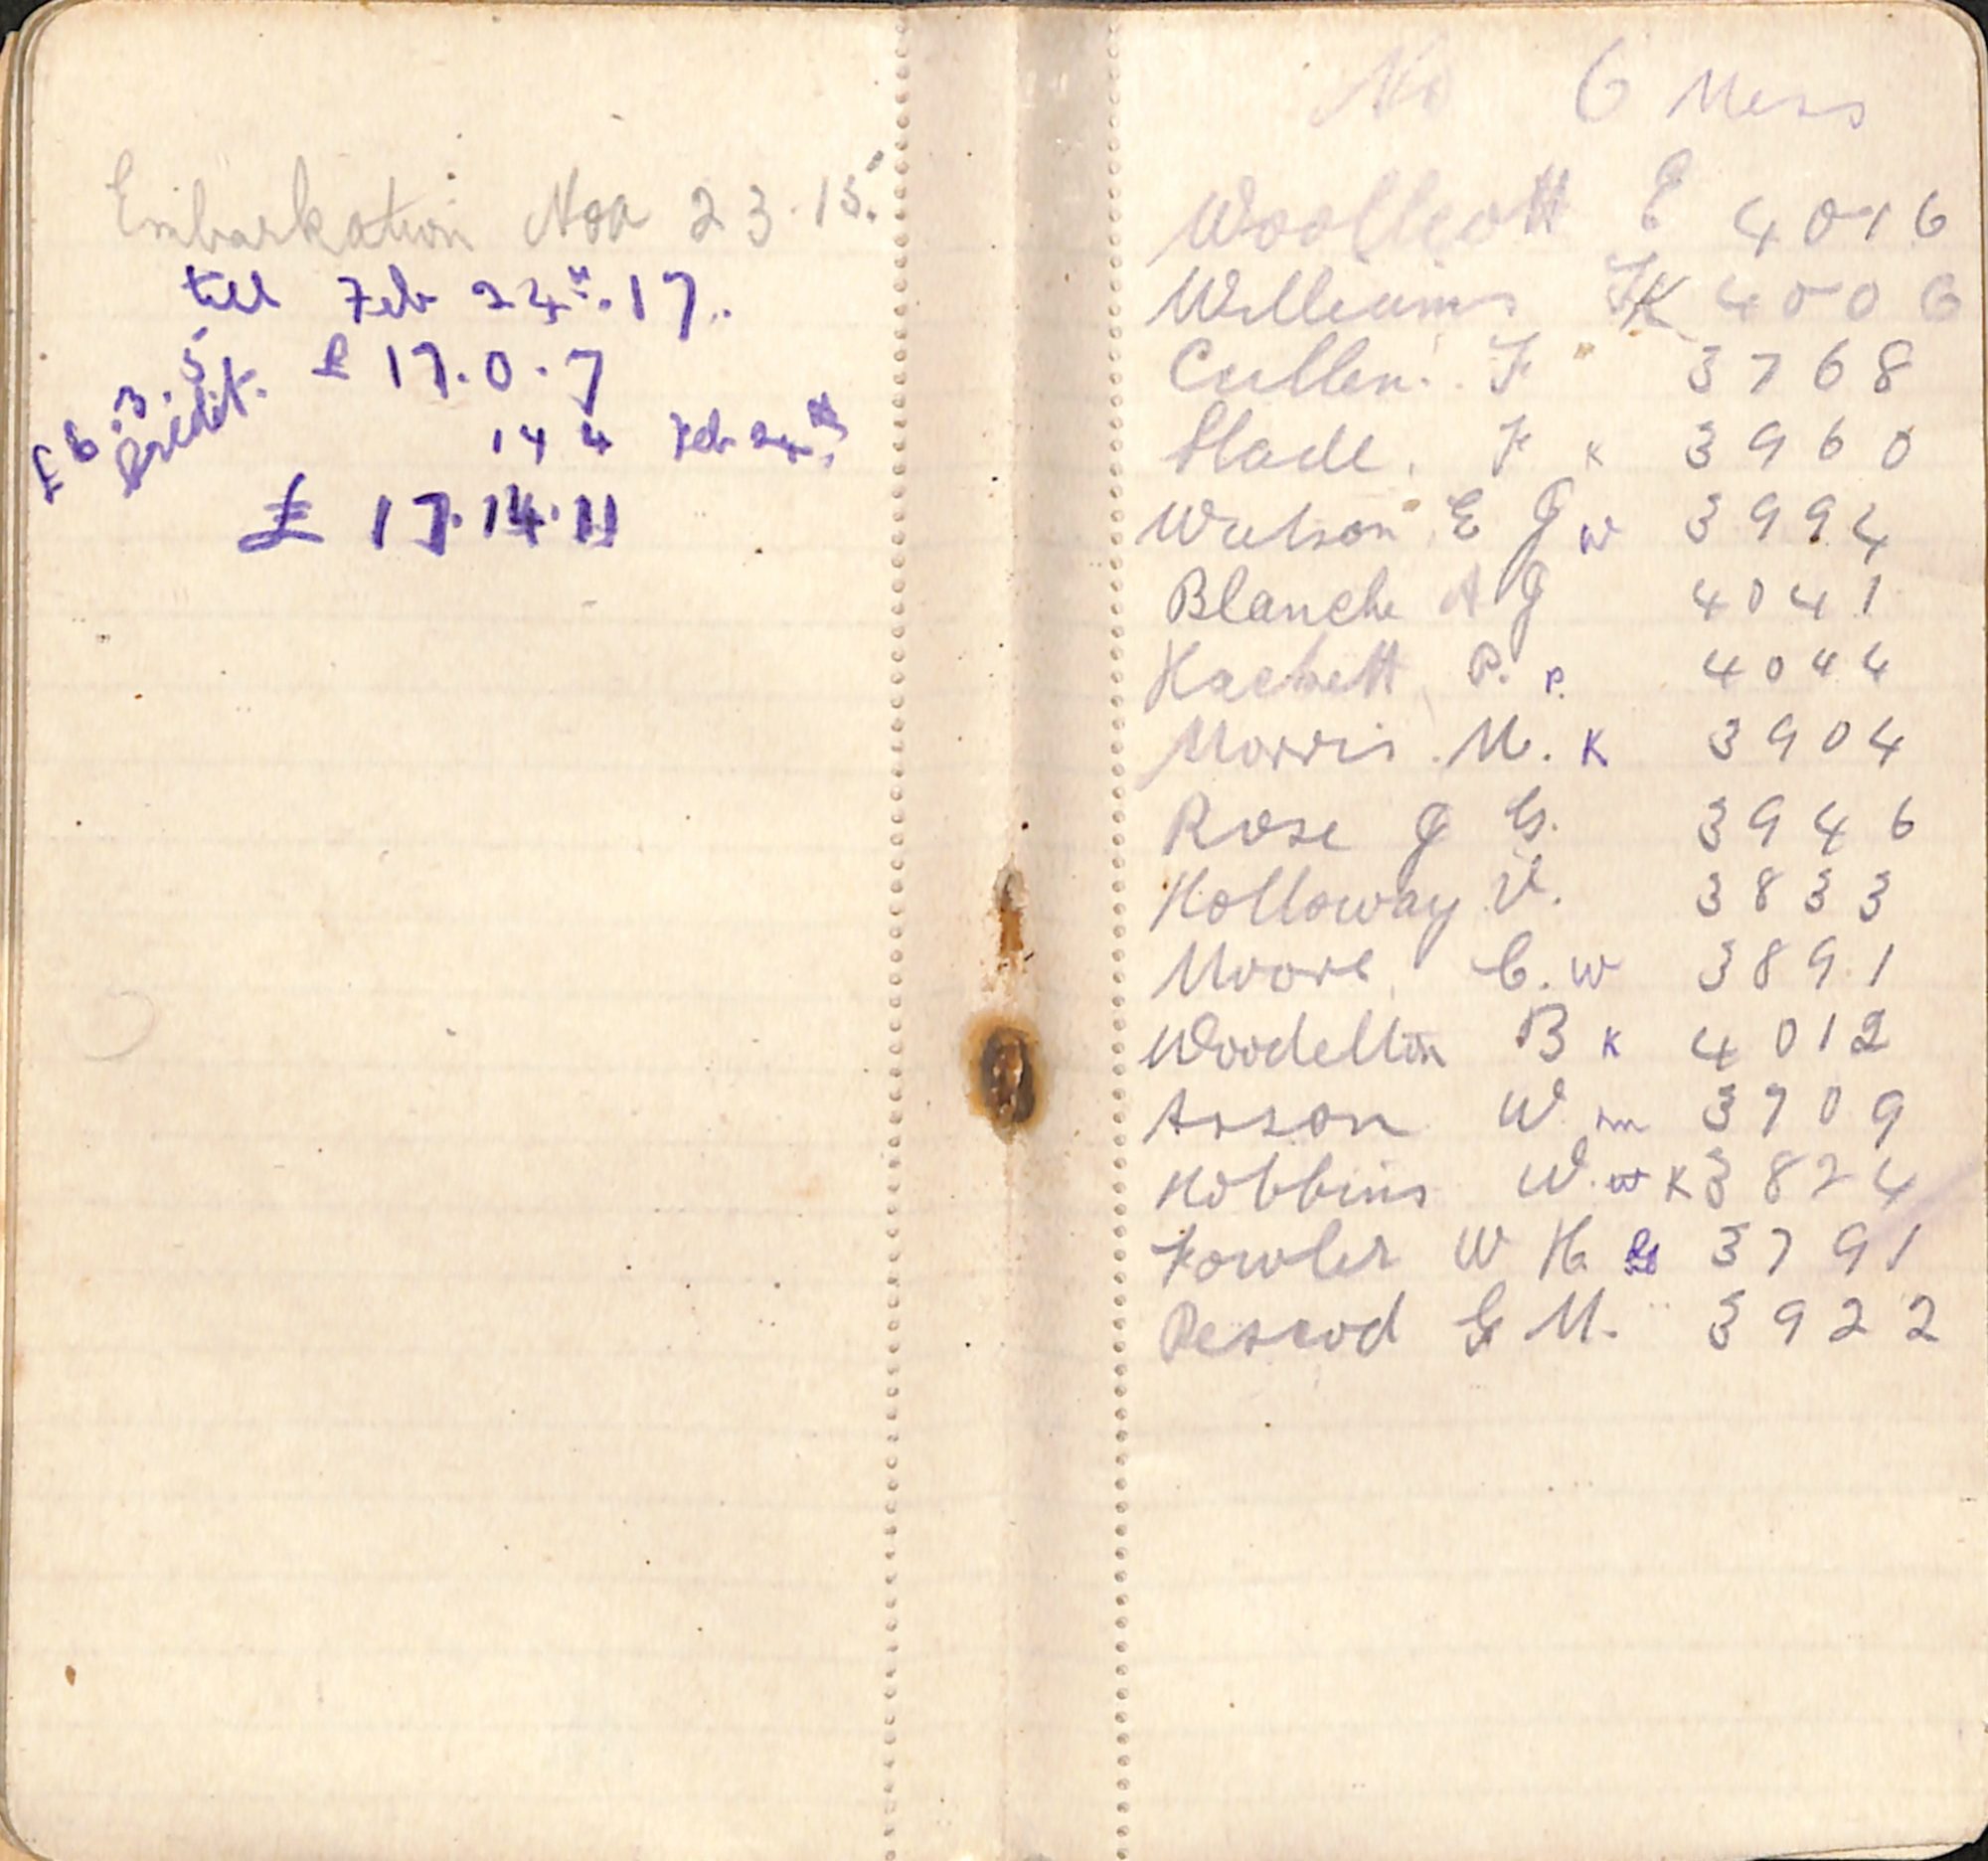 Embarkation Nov 23.15.
till Feb 24th.17.
£ 17.0.7
£6.3.5
Credit.
14 4 Feb 24th
£ 17.14.11
No 6 Mess
Woollcott E 4016
Williams K 4006
Cullen. F 3768
Slade. F K 3960
Watson E G W 3994
Blanche A G 4041
Hackett P. P. 4044
Morris. M. K 3904
Rose G G. 3946
Holloway V. 3833
Moore C. W 3891
Woodelton B K 4012
Asson W m 3709
Hobbins W. w K 3824
Fowler W H 3791
Pescod G M. 3922